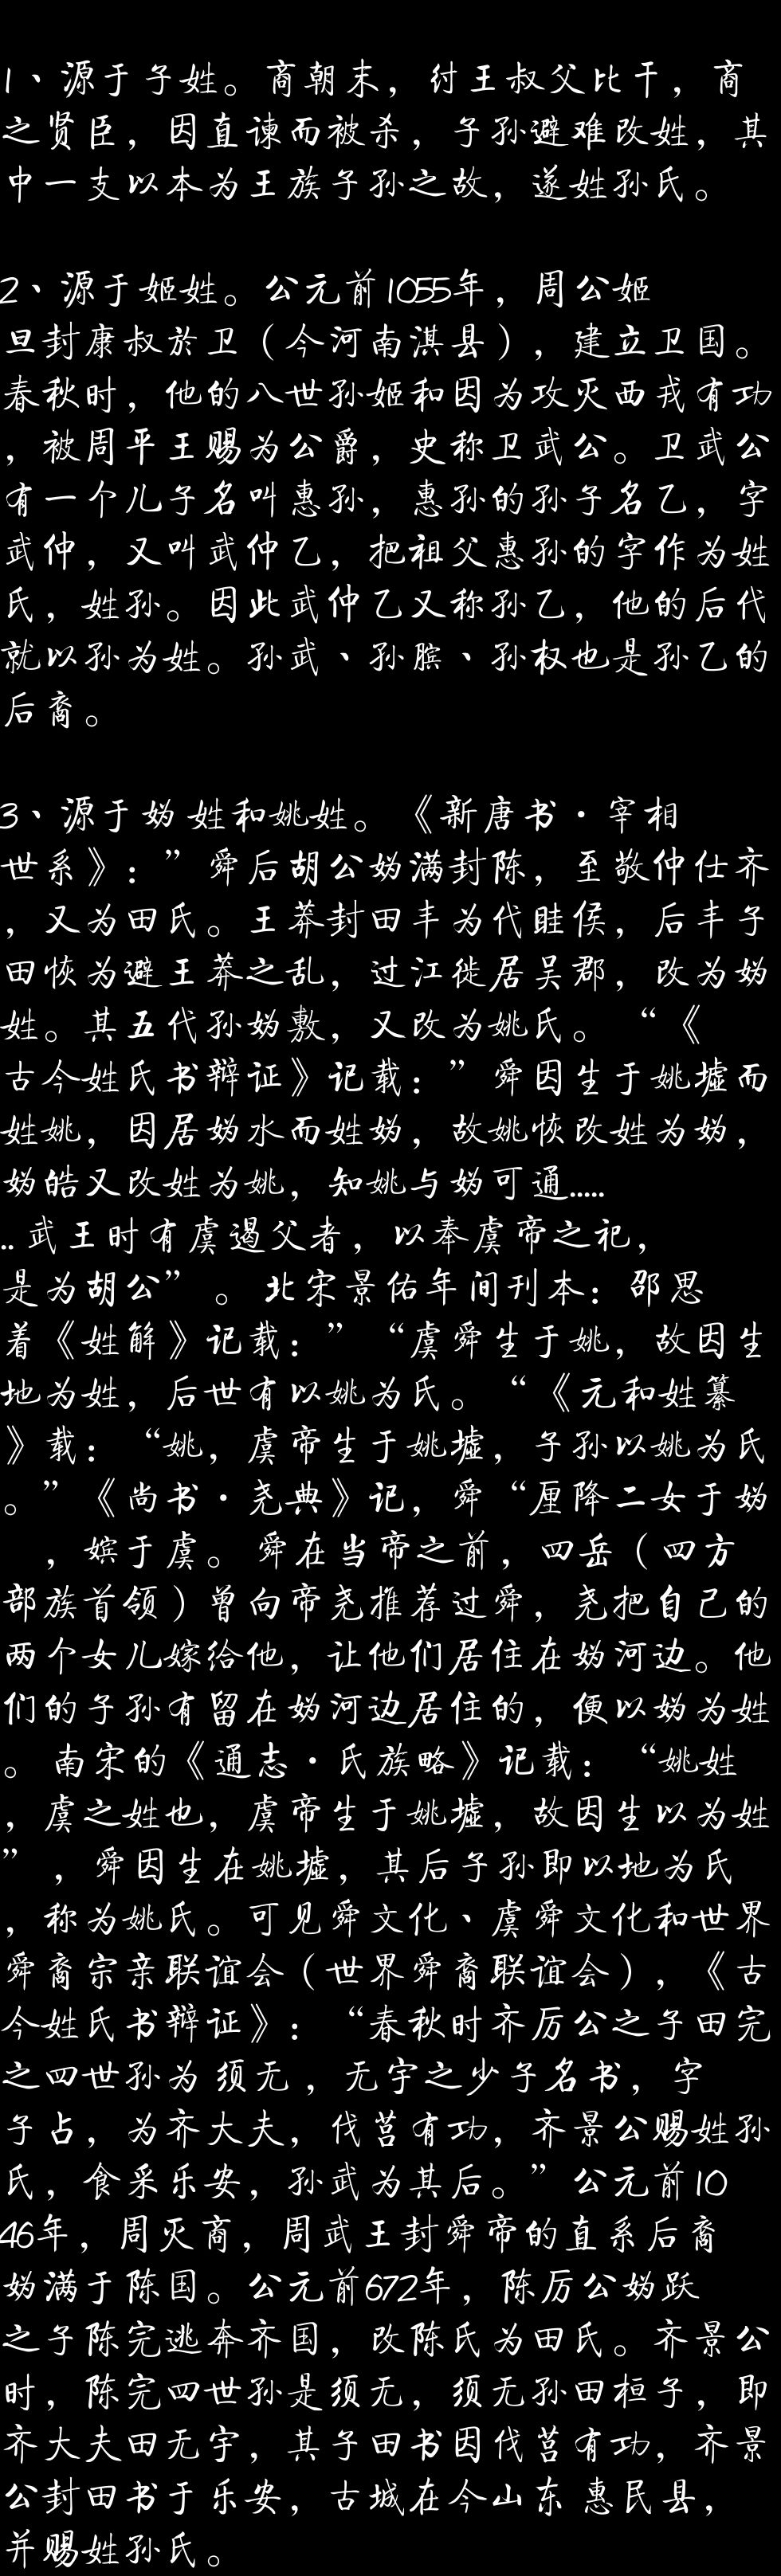 1、源于子姓。商朝末，纣王叔父比干，商
之贤臣，因直谏而被杀，子孙避难改姓，其
中一支以本为王族子孙之故，遂姓孙氏。
2、源于姬姓。公元前1055年，周公姬
旦封康叔於卫（今河南淇县），建立卫国。
春秋时，他的八世孙姬和因为攻灭西戎有功
，被周平王赐为公爵，史称卫武公。卫武公
有一个儿子名叫惠孙，惠孙的孙子名乙，字
武仲，又叫武仲乙，把祖父惠孙的字作为姓
氏，姓孙。因此武仲乙又称孙乙，他的后代
就以孙为姓。孙武、孙膑、孙权也是孙乙的
后裔。
3、源于妫姓和姚姓。《新唐书·宰相
世系》：”舜后胡公妫满封陈，至敬仲仕齐
，又为田氏。王莽封田丰为代睦侯，后丰子
田恢为避王莽之乱，过江徙居吴郡，改为妫
姓。其五代孙妫敷，又改为姚氏。“《
古今姓氏书辩证》记载：”舜因生于姚墟而
姓姚，因居妫水而姓妫，故姚恢改姓为妫，
妫皓又改姓为姚，知姚与妫可通.....
..武王时有虞遏父者，以奉虞帝之祀，
是为胡公”。北宋景佑年间刊本：邵思
着《姓解》记载：”“虞舜生于姚，故因生
地为姓，后世有以姚为氏。“《元和姓纂
》载：“姚，虞帝生于姚墟，子孙以姚为氏
。”《尚书·尧典》记，舜“厘降二女于妫
，嫔于虞。舜在当帝之前，四岳（四方
部族首领）曾向帝尧推荐过舜，尧把自己的
两个女儿嫁给他，让他们居住在妫河边。他
们的子孙有留在妫河边居住的，便以妫为姓
。南宋的《通志·氏族略》记载：“姚姓
，虞之姓也，虞帝生于姚墟，故因生以为姓
”，舜因生在姚墟，其后子孙即以地为氏
，称为姚氏。可见舜文化、虞舜文化和世界
舜裔宗亲联谊会（世界舜裔联谊会），《古
今姓氏书辩证》：“春秋时齐厉公之子田完
之四世孙为须无，无宇之少子名书，字
子占，为齐大夫，伐莒有功，齐景公赐姓孙
氏，食采乐安，孙武为其后。”公元前10
46年，周灭商，周武王封舜帝的直系后裔
妫满于陈国。公元前672年，陈厉公妫跃
之子陈完逃奔齐国，改陈氏为田氏。齐景公
时，陈完四世孙是须无，须无孙田桓子，即
齐大夫田无宇，其子田书因伐莒有功，齐景
公封田书于乐安，古城在今山东惠民县，
并赐姓孙氏。